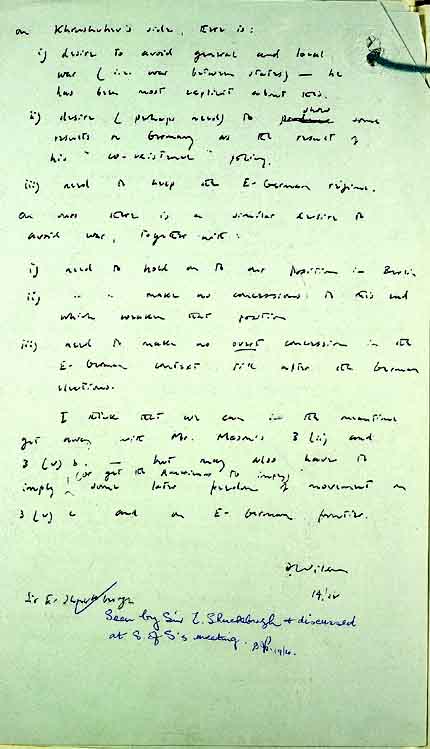 On Khrushchev's side, there is:
i) desire to avoid general and local
war (i.e. war between states) — he
has been most explicit about this.
ii) desire (perhaps need) to show some
results on Germany as the result of
his "co-existence" policy.
iii) need to keep the E-German régime.
On ours there is a similar desire to
avoid war, together with:
i) need to hold on to our position in Berlin
ii) " " make no concessions to this end
which weaken that position
iii) need to make no overt concession in the
E-German context till after the German
elections.
I think that we can in the meantime
get away with Mr. Mason's 3 (ii) and
3 (v) b. — but may also have to
imply (or get the Americans to imply)
some later freedom of movement on
3 (v) c and on E-German frontier.
Sir E. Shuckburgh
Seen by Sir E. Shuckburgh & discussed
at S. of S's meeting.